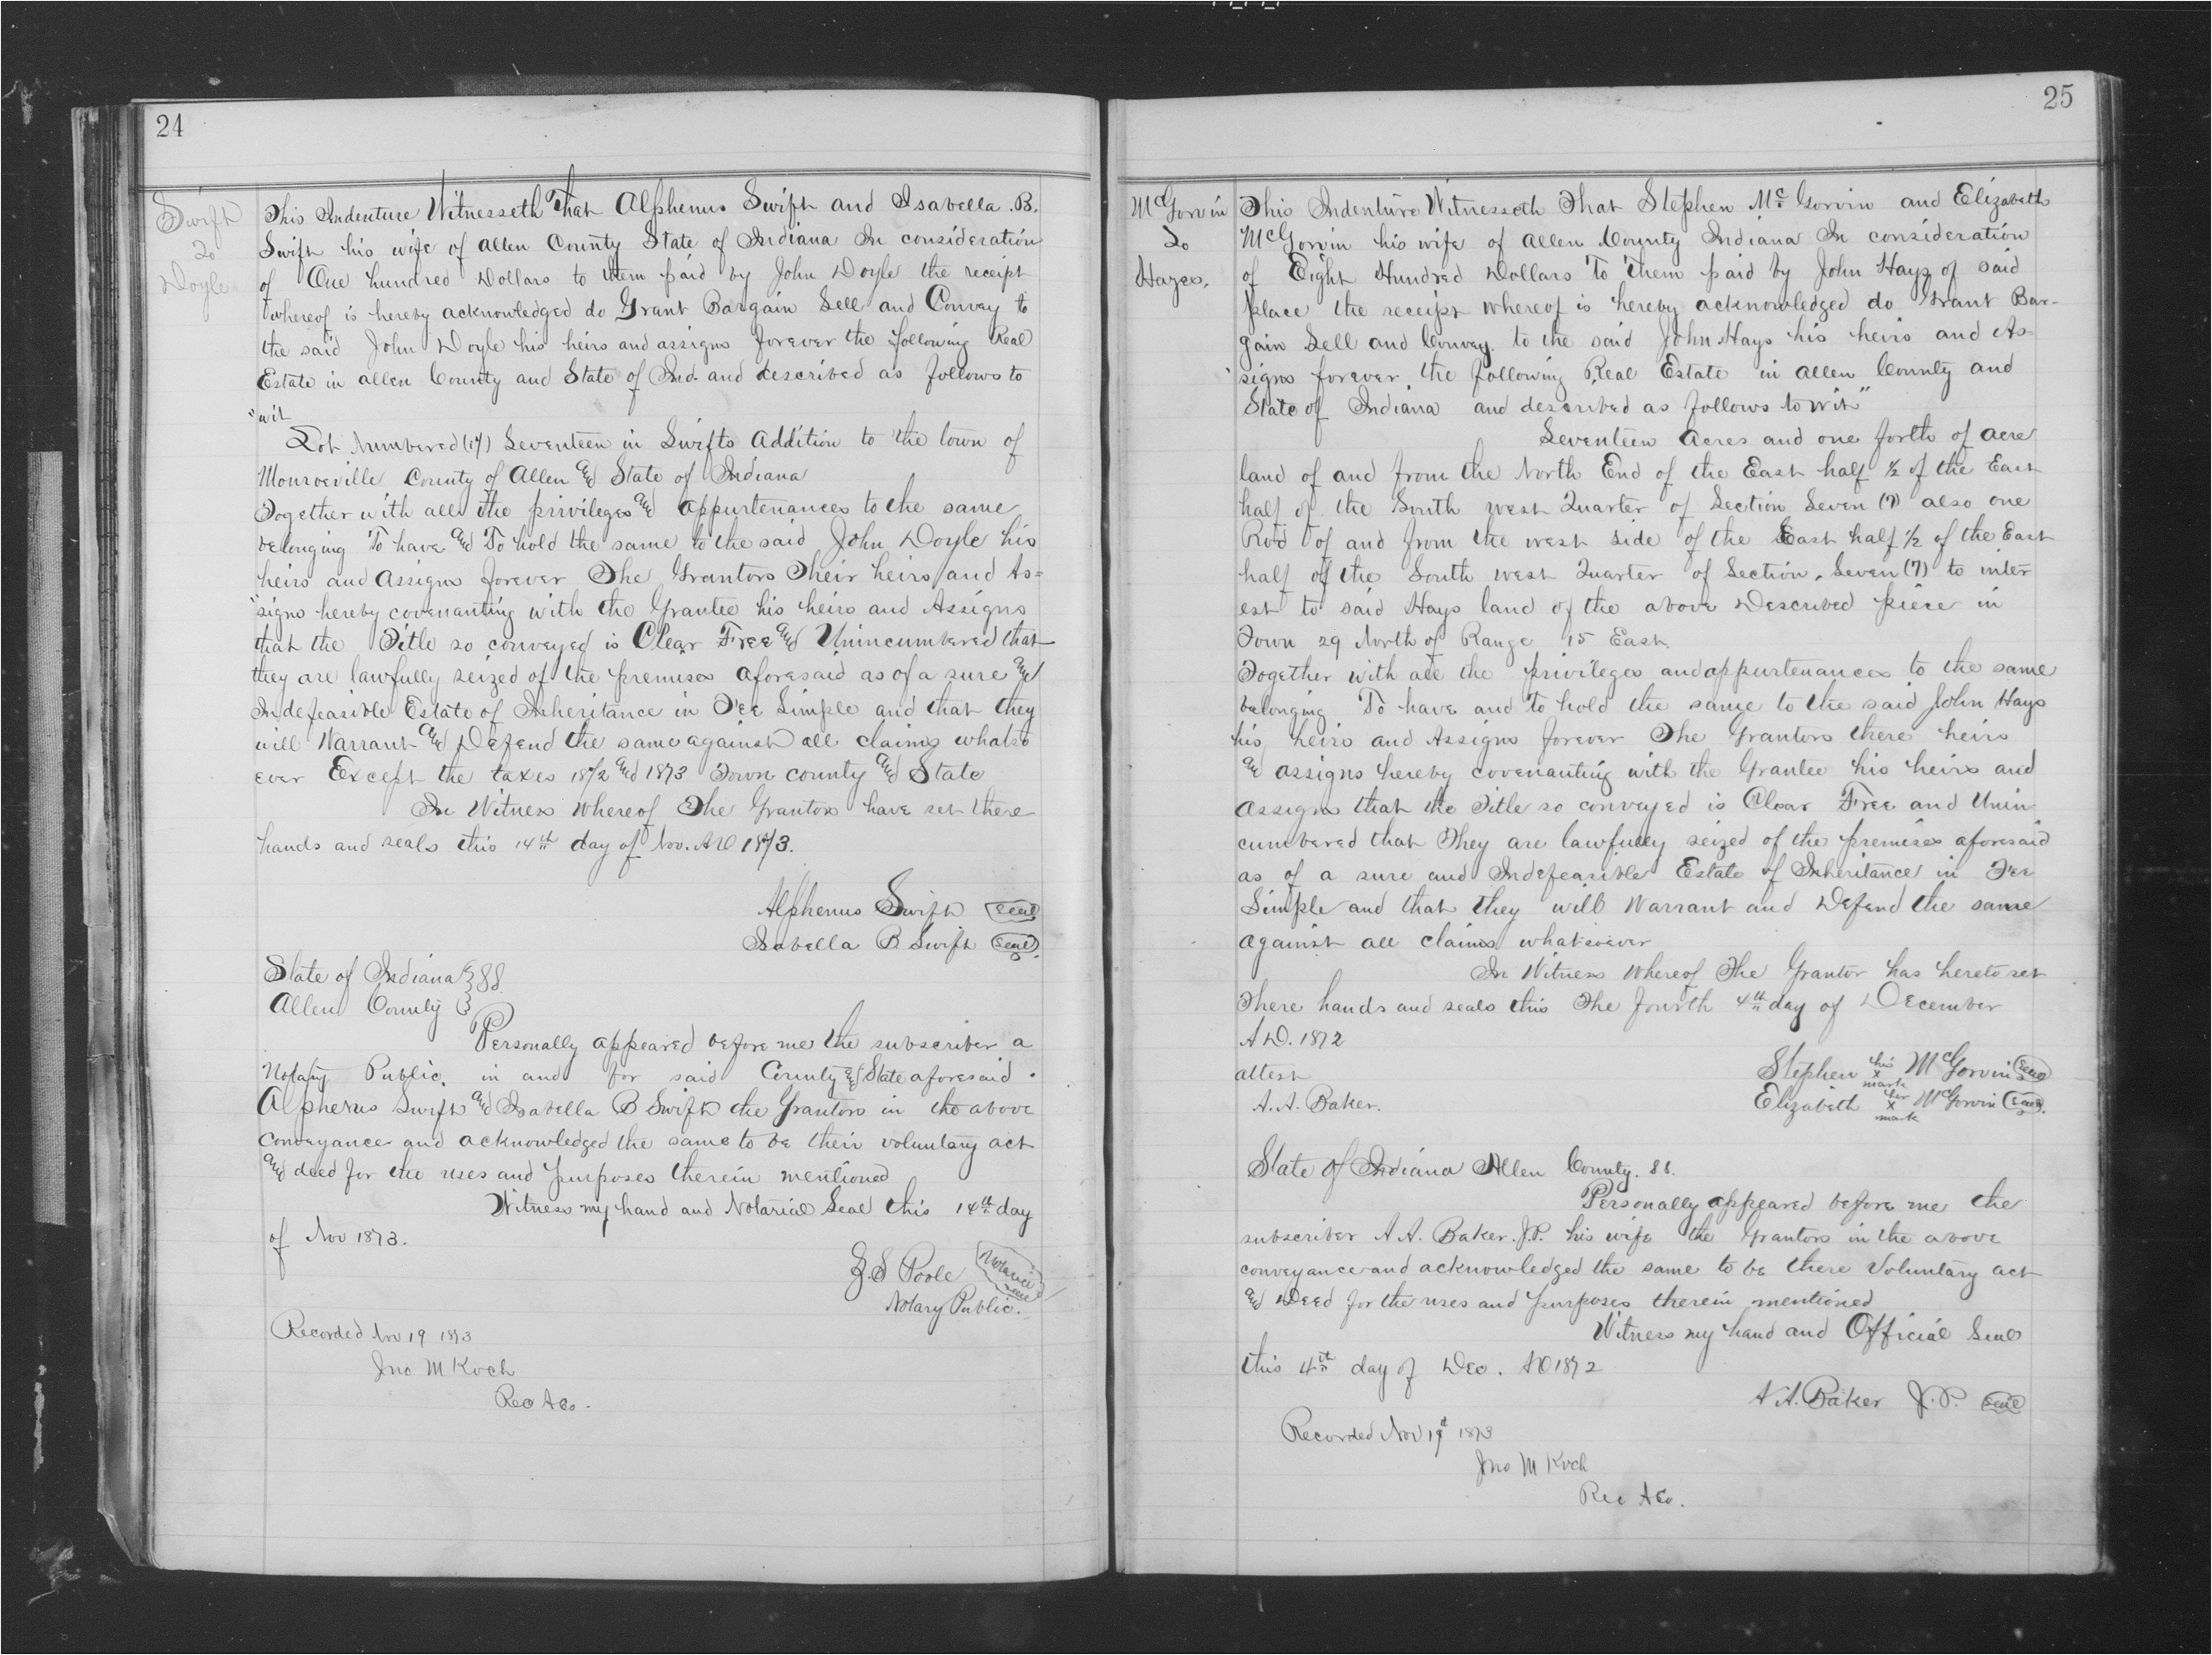 24
Swift
To
Doyle
This Indenture Witnesseth That Alphenus Swift and Isabella . B.
Swift his wife of Allen County State of Indiana In consideration
of One hundred Dollars to them paid by John Doyle the receipt
whereof is hereby acknowledged do Grant Bargain Sell and Convey to
the said John Doyle his heirs and assigns forever the following Real
Estate in Allen County and State of Ind. and described as follows to
"wit
Lot Numbered (17) Seventeen in Swifts Addition to the town of
Monroeville County of Allen and State of Indiana
Together with all the privileges and appurtenances to the same
belonging To have and To hold the same to the said John Doyle his
heirs and Assigns forever The Grantors Their heirs and As=
"signs hereby covenanting with the Grantee his heirs and Assigns
that the Title so conveyed is Clear Free and Unincumbered that
they are lawfully seized of the premises aforesaid as of a sure and
Indefeasible Estate of Inheritance in Fee Simple and that they
will Warrant and Defend the same against all claims whatso
ever Except the taxes 1872 and 1873 Town county and State
In Witness Whereof The Grantors have set there
hands and seals this 14th day of Nov. AD 1873.
Alphenus Swift Seal
Isabella B Swift Seal
State of Indiana } SS.
Allen County }
Personally appeared before me the subscriber a
Notary Public, in and for said County and State aforesaid .
Alphenus Swift and Isabella B Swift the Grantors in the above
Conveyance and acknowledged the same to be their voluntary act
and deed for the uses and purposes therein mentioned
Witness my hand and Notarial Seal this 14th day
of Nov 1873.
Z. S Poole Notarial Seal
Notary Public.
Recorded Nov 19 1873
Jno M Koch
Rec A Co.
25
McGorvin
To
Hazes.
This Indenture Witnesseth That Stephen Mc Gorvin and Elizabeth
McGorvin his wife of Allen County Indiana In consideration
of Eight Hundred Dollars To Them paid by John Hays of said
place the receipt whereof is hereby acknowledged do Grant Bar-
gain Sell and Convey to the said John Hays his heirs and As-
"signs forever the following Real Estate in Allen County and
State of Indiana and described as follows to wit"
Seventeen Acres and one forth of acre
land of and from the North End of the East half 1/2 of the East
half of the South west Quarter of Section Seven (7) also one
Rod of and from the west side of the East half 1/2 of the East
half of the South west Quarter of Section Seven (7) to inter
est to said Hays land of the above Described piece in
Town 29 North of Range 15 East.
Together with all the privileges and appurtenances to the same
belonging To have and to hold the same to the said John Hays
his heirs and Assigns forever The Grantors there heirs
and assigns hereby covenanting with the Grantee his heirs and
Assigns that the Title so conveyed is Clear Free and Unin
cumbered that They are lawfully seized of the premises aforesaid
as of a sure and Indefeasible Estate of Inheritance in Fee
Simple and that they will Warrant and Defend the same
against all claims whatsoever
In Witness Whereof The Grantor has hereto set
There hands and seals this The fourth 4th day of December
AD. 1872
attest
A. A. Baker.
Stephen his x mark McGorvin Seal
Elizabeth her x mark McGorvin Seal.
State of Indiana Allen County. SS.
Personally appeared before me the
subscriber A A. Baker. J.P. his wife the Grantors in the above
conveyance and acknowledged the same to be there Voluntary act
and Deed for the uses and purposes therein mentioned
Witness my hand and Official Seal
this 4th day of Dec. AD 1872
A A. Baker J. P. Seal
Recorded Nov 19th 1873
Jno M Koch
Rec A Co.